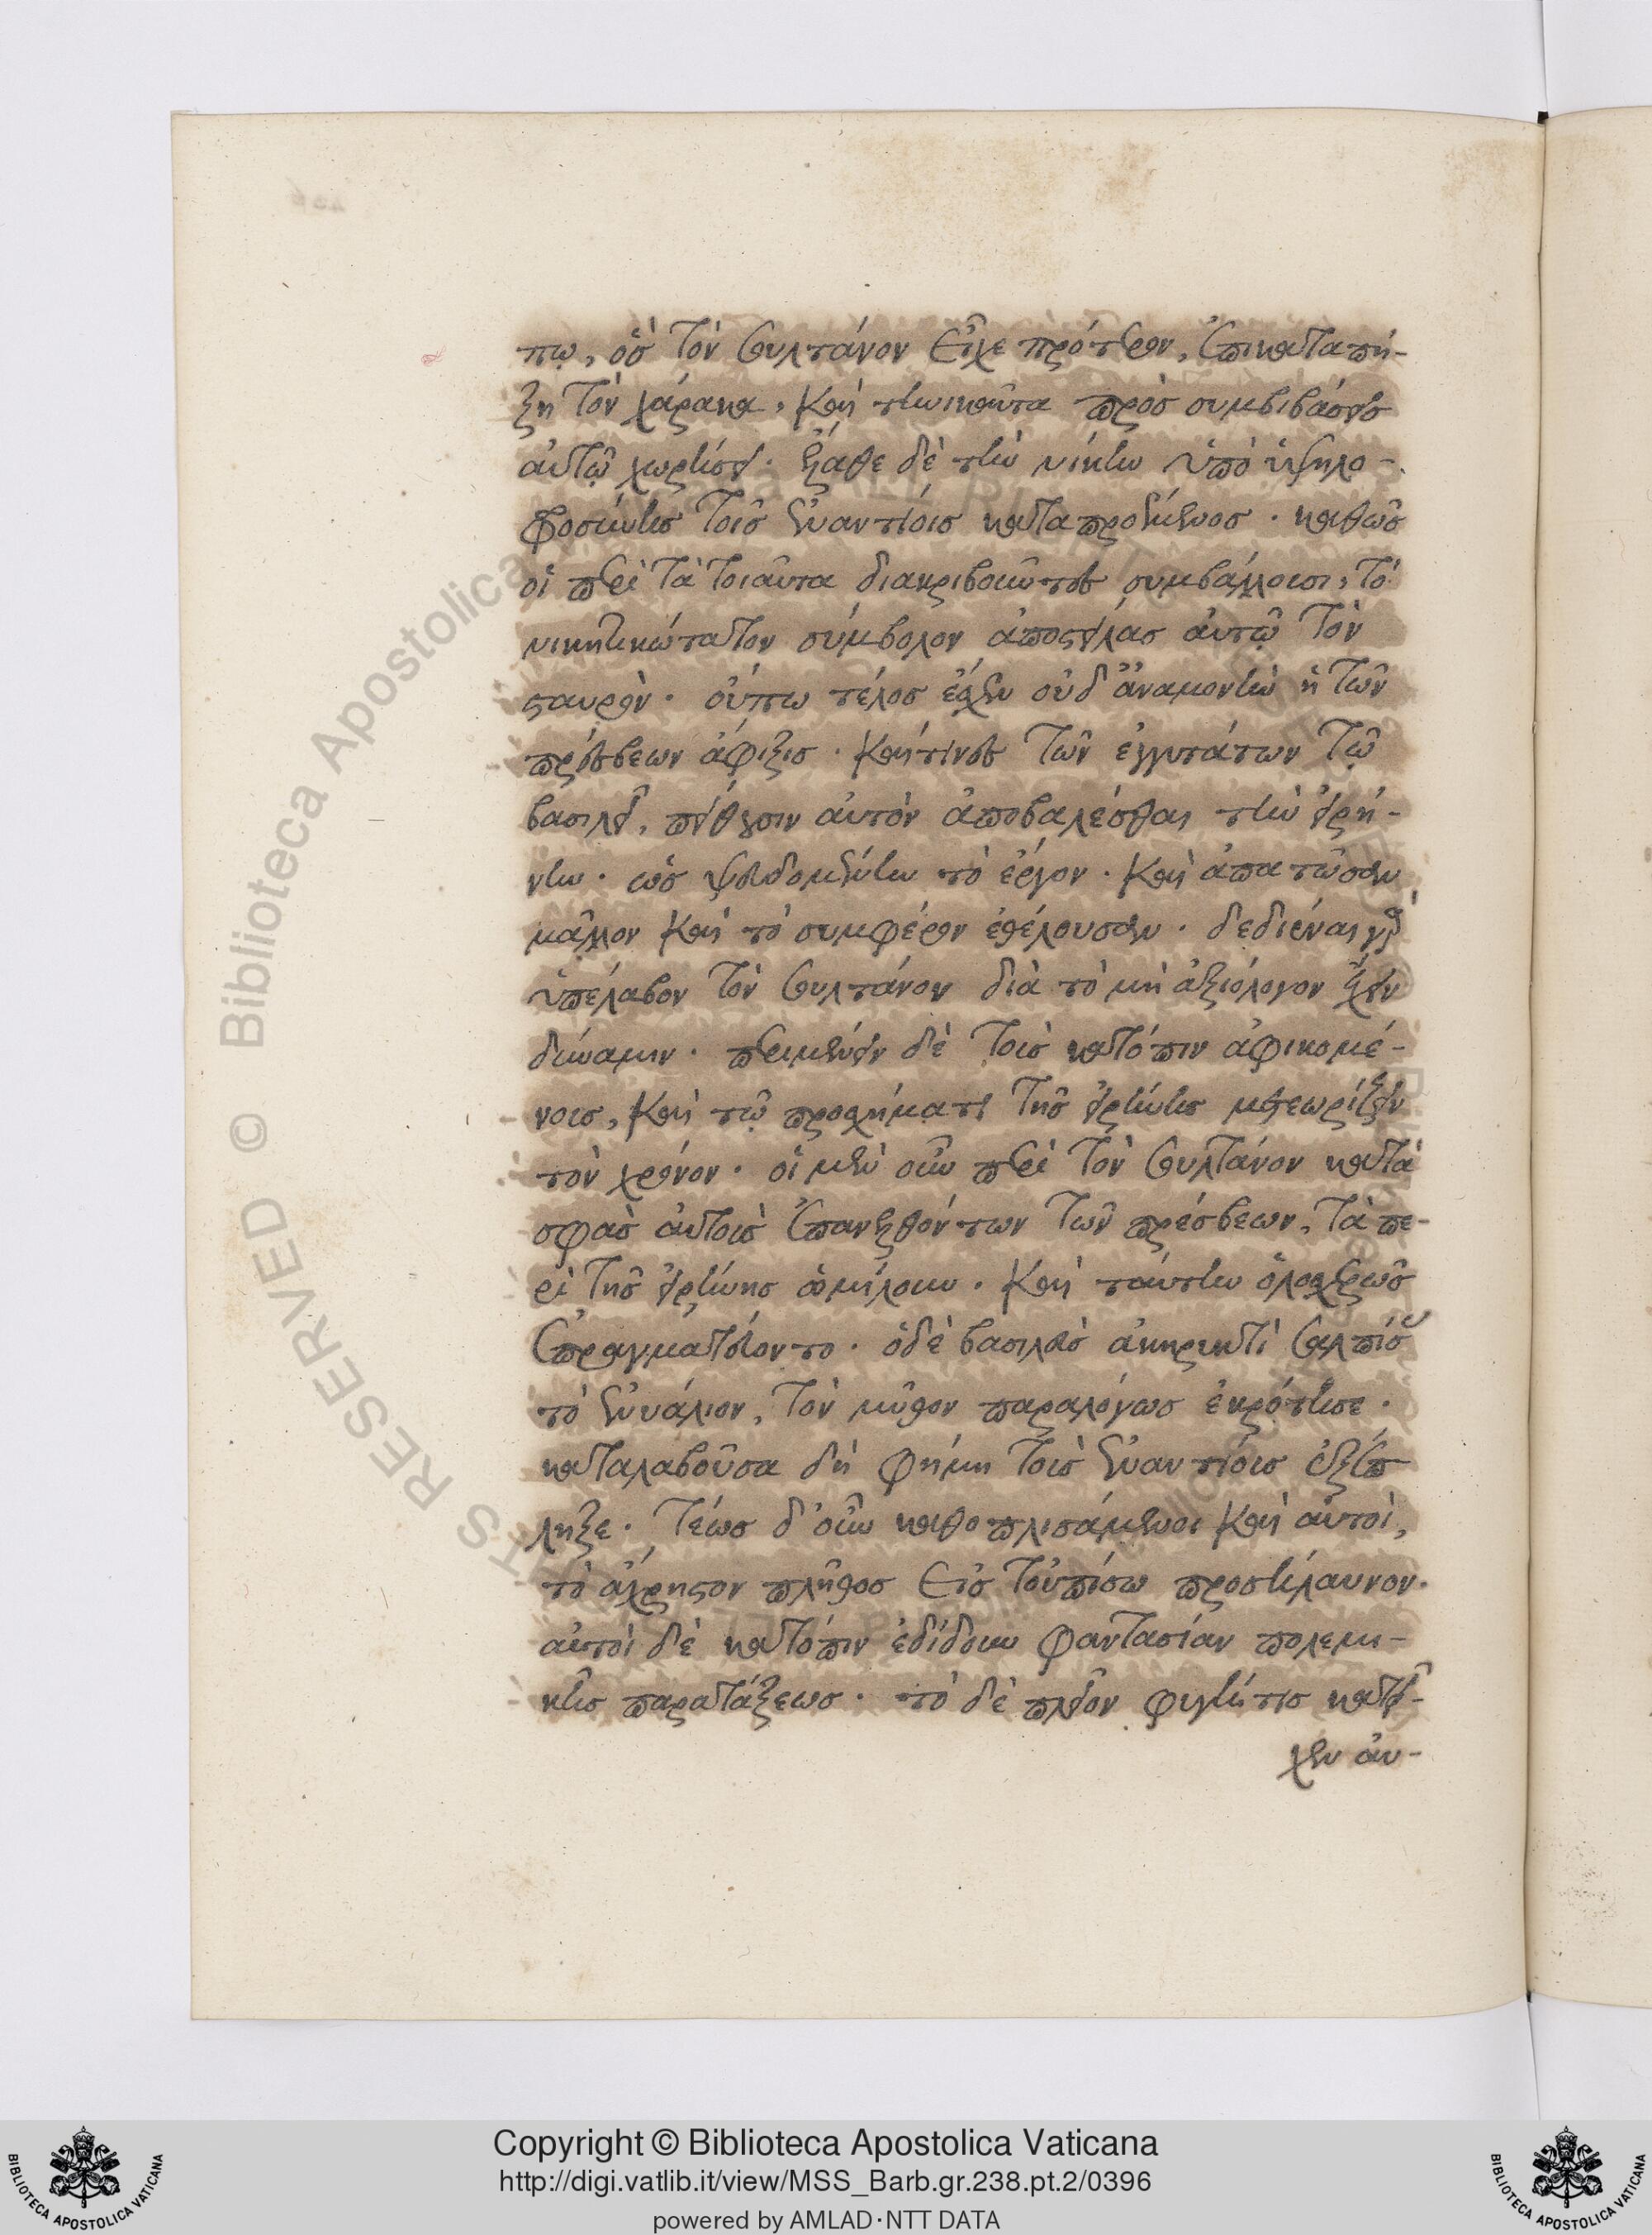 πῳ, ὃς τὸν σουλτάνον εἶχε πρότερον, ἐπικαταπή-
ξῃ τὸν χάρακα, καὶ τηνικαῦτα πρὸς συμβιβάσεις
αὐτῷ χωρήσει. ἔλαθε δὲ τὴν νίκην ὑπὸ ὑψηλο-
φροσύνης τοῖς ἐναντίοις καταπροέμενος. καθὼς
οἱ περὶ τὰ τοιαῦτα διακριβοῦντες συμβάλλουσι, τὸ
νικητικώτατον σύμβολον ἀποστείλας αὐτῷ τὸν
σταυρὸν. οὔπω τέλος ἔσχεν οὐδ' ἀναμονὴν ἡ τῶν
πρέσβεων ἄφιξις. καὶ τινες τῶν ἐγγυτάτων τῷ
βασιλεῖ, πείθουσιν αὐτὸν ἀποβαλέσθαι τὴν εἰρή-
νην. ὡς ψευδομένην τὸ ἔργον. καὶ ἀπατῶσαν
μᾶλλον καὶ τὸ συμφέρον ἐθέλουσαν. δεδιέναι γὰρ
ὑπέλαβον τὸν σουλτάνον διὰ τὸ μὴ ἀξιόλογον ἔχειν
δύναμιν. περιμένειν δὲ τοὺς κατόπιν ἀφικομέ-
νους, καὶ τῷ προσχήματι τῆς εἰρήνης μετεωρίζειν
τὸν χρόνον. οἱ μὲν οὖν περὶ τὸν σουλτάνον κατὰ
σφᾶς αὐτοὺς ἐπανελθόντων τῶν πρέσβεων, τὰ πε-
ρὶ τῆς εἰρήνης ὡμίλουν. καὶ ταύτην ὁλοσχερῶς
ἐπραγματεύοντο. ὁ δὲ βασιλεὺς ἀκηρυκτὶ σαλπίσας
τὸ ἐνυάλιον, τὸν μῦθον παραλόγως ἐκρότησε.
καταλαβοῦσα δὴ φήμη τοὺς ἐναντίους ἐξέπ
ληξε. τέως δ' οὖν καθοπλισάμενοι καὶ αὐτοὶ,
τὸ ἄχρηστον πλῆθος εἰς τοὐπίσω προσήλαυνον.
αὐτοὶ δὲ κατόπιν ἐδίδουν φαντασίαν πολεμι-
κῆς παρατάξεως. τὸ δὲ πλεῖον φυγή τις κατεῖ-
χεν αὐ-
Copyright © Biblioteca Apostolica Vaticana
http://digi.vatlib.it/view/MSS_Barb.gr.238.pt.2/0396
powered by AMLAD·NTT DATA